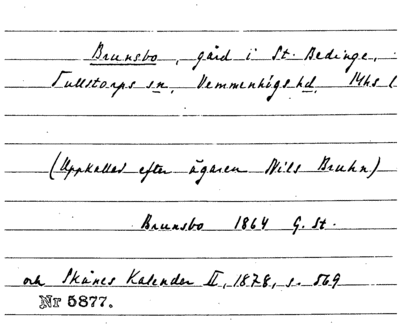 Brunsbo, gård i St. Bedinge,
Tullstorps sn, Vemmenhögs hd. Mhs l
(Uppkallad efter ägaren Nils Bruhn)
Brunsbo 1864 G. St.
och Skånes Kalender II, 1878, s. 569
Nr 5877.